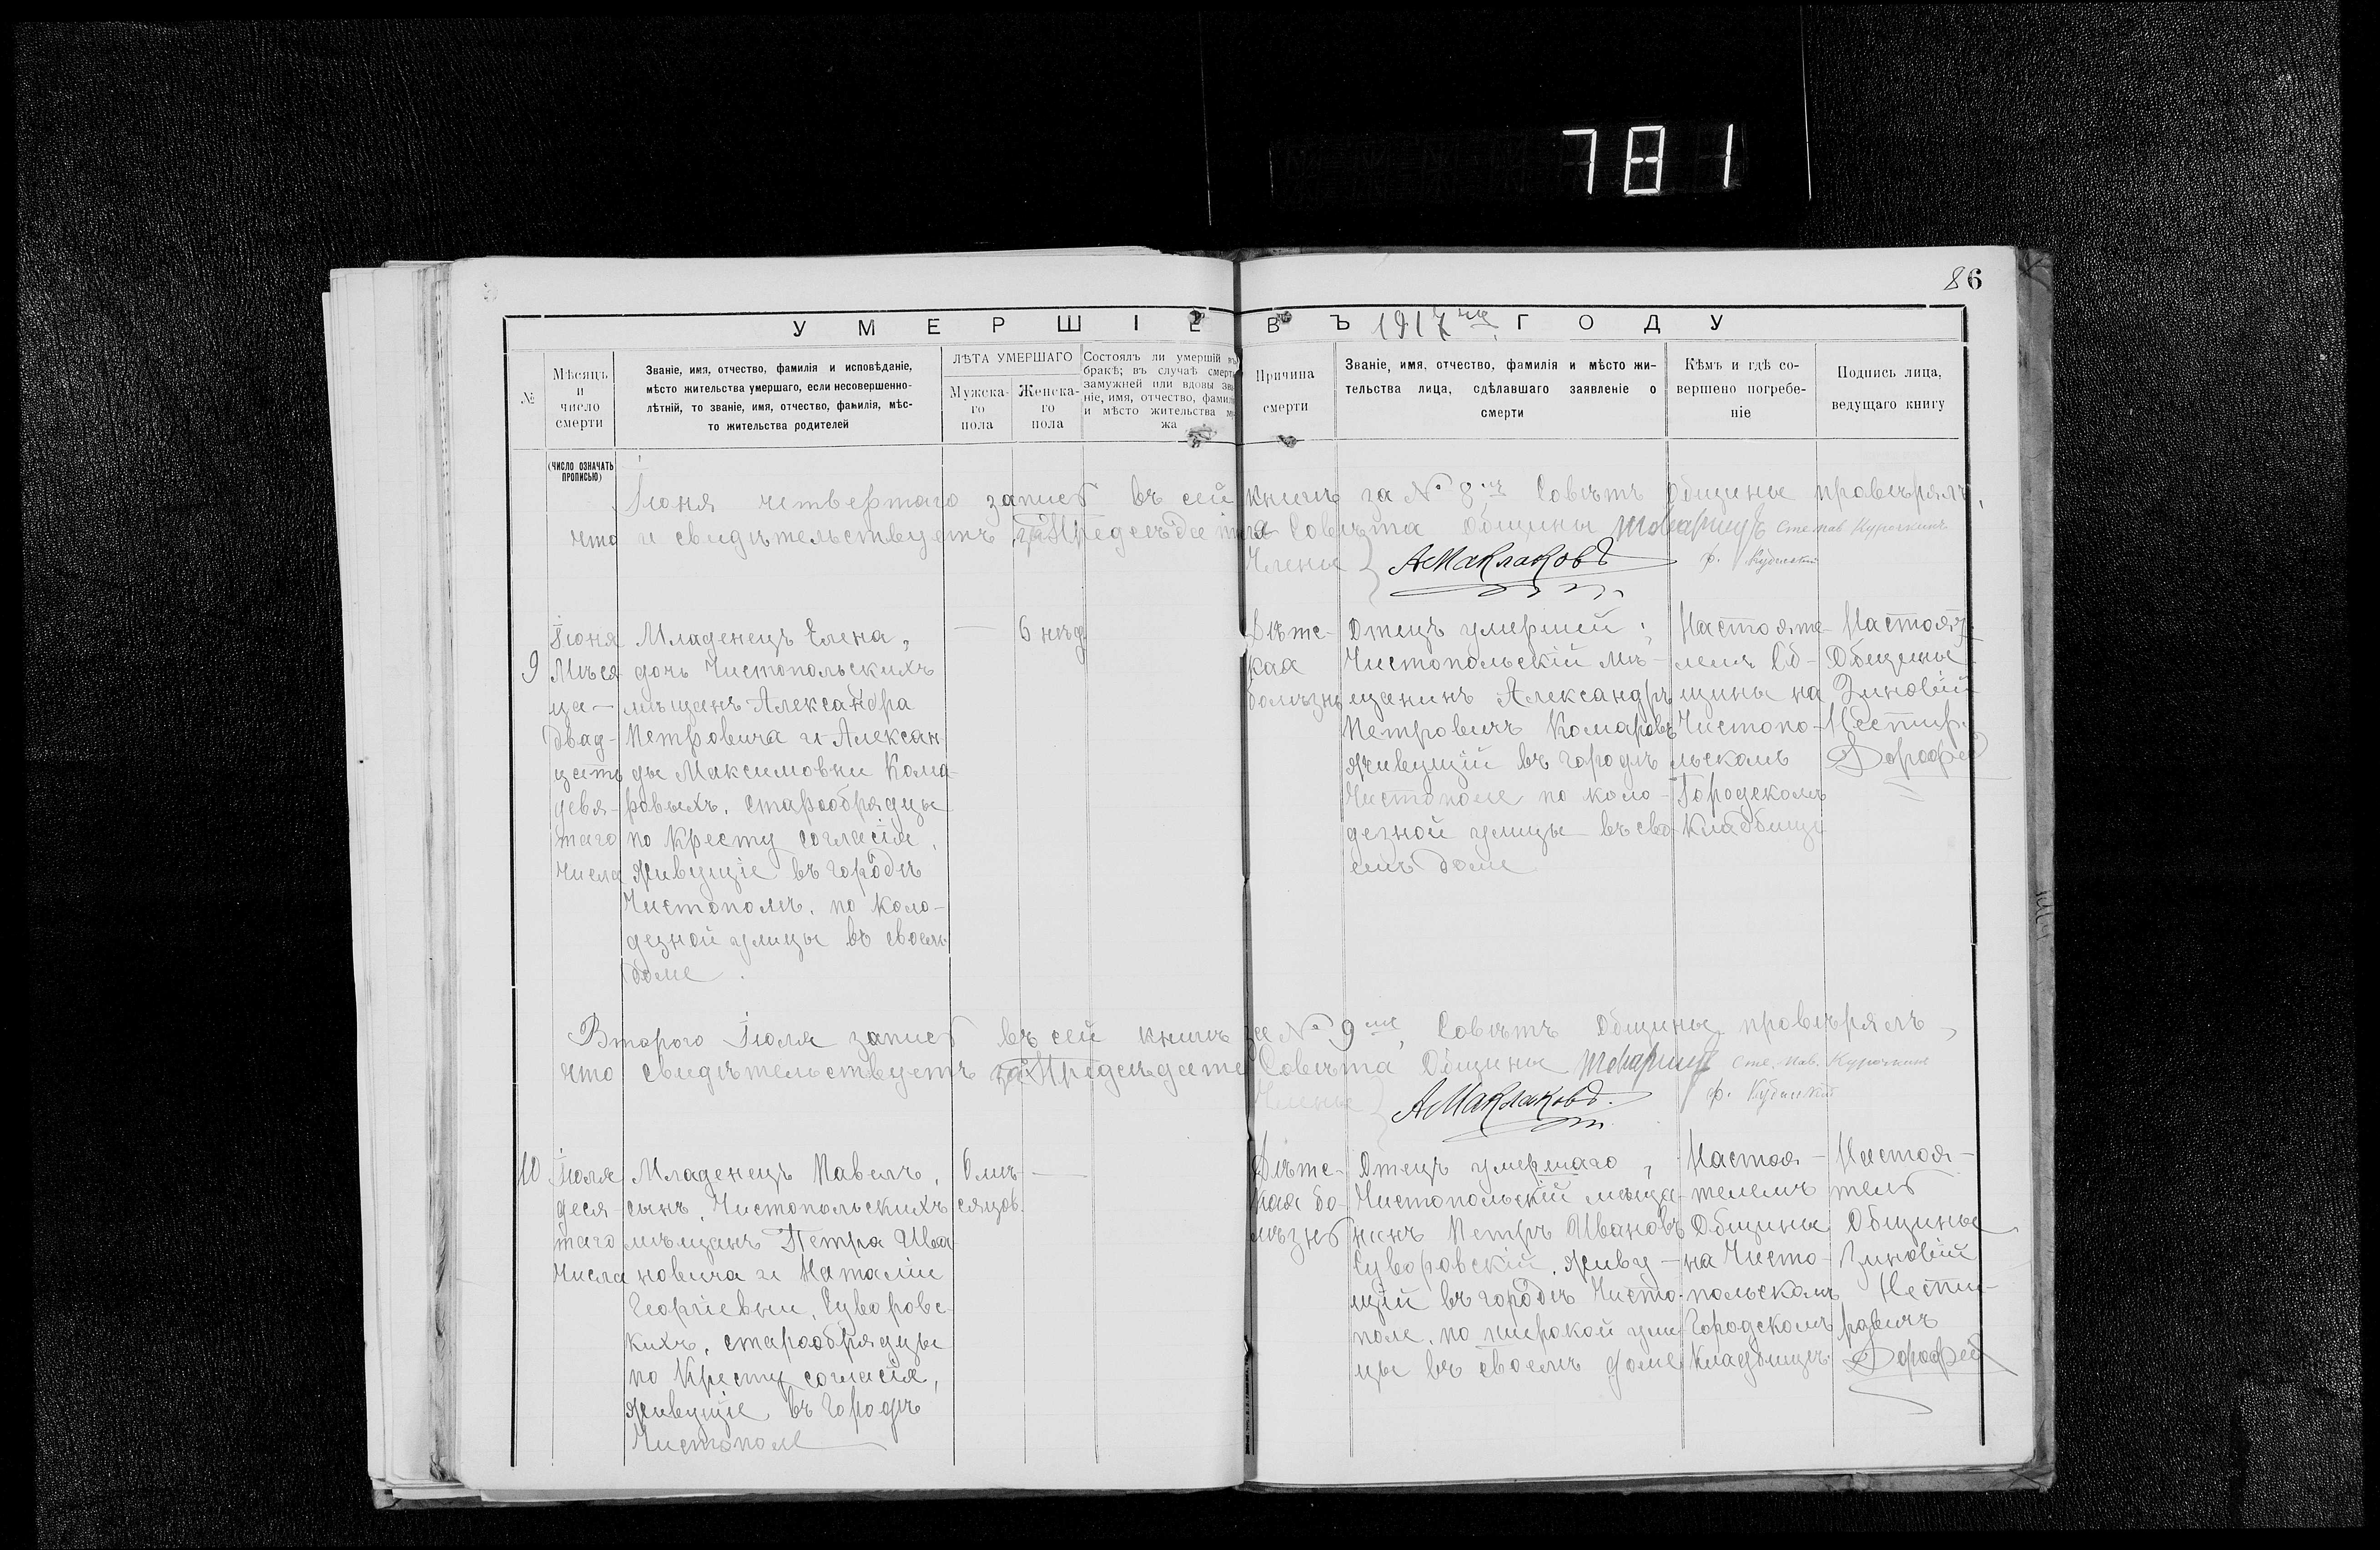 781
86
УМЕРШІЕ ВЪ 1917 ГОДУ
№
Мѣсяцъ
и
число
смерти
Званіе, имя, отчество, фамилія и исповѣданіе,
мѣсто жительства умершаго, если несовершенно-
лѣтній, то званіе, имя, отчество, фамилія, мѣс-
то жительства родителей
ЛѢТА УМЕРШАГО
Мужска-
го
пола
Женска-
го
пола
Состоялъ ли умершій въ
бракѣ; въ случаѣ смерти
замужней или вдовы зва-
ніе, имя, отчество, фамилія
и мѣсто жительства му-
жа
Причина
смерти
Званіе, имя, отчество, фамилія и мѣсто жи-
тельства лица, сдѣлавшаго заявленіе о
смерти
Кѣмъ и гдѣ со-
вершено погребе-
ніе
Подпись лица,
ведущаго книгу
(ЧИСЛО ОЗНАЧАТЬ
ПРОПИСЬЮ)
Іюня четвертаго запись въ сей книгѣ за № 8 Совѣтъ Общины провѣрялъ,
что и свидѣтельствуетъ за Предсѣдателя Совѣта Общины Товарищъ Степ Пав Курочкинъ
Члены АМаклаковъ Ф. Кубицкій
9
Іюня
Мѣся-
ца
двад-
цать
девя-
таго
числа
Младенецъ Елена,
дочь Чистопольскихъ
мѣщанъ Александра
Петровича и Алексан
ды Максимовны Кома-
ровыхъ, старообрядцы
по Кресту согласія,
Живущіе въ городѣ
Чистополѣ, по Коло-
дезной улицы въ своемъ
доме.
—
6 недѣ
Дѣтс-
кая
болѣзнь
Отецъ умершей,
Чистопольскій мѣ-
щанинъ Александръ
Петровичъ Комаровъ
Живущій въ городѣ
Чистополе по коло-
дезной улицы въ сво-
емъ доме
Настояте-
лемъ Об-
щины на
Чистопо-
льскомъ
Городскомъ
Кладбище
Настоят.
Общины
Зиновій
Нестир.
Дорофеев
Второго Іюля запись въ сей книгѣ за № 9 Совѣтъ Общины провѣрялъ,
что свидѣтельствуетъ за Предсѣдате Совѣта Общины Товарищъ Сте. Пав. Курочкинъ
Члены АМаклаковъ. Ф. Кубицкій
10
Іюля
деся-
таго
числа
Младенецъ Павелъ,
сынъ, Чистопольскихъ
мѣщанъ Петра Ива-
новича и Наталіи
Георгіевны, Суворовс-
кихъ, старообрядцы
по Кресту согласія,
Живущіе въ городѣ
Чистополе
6 мѣ-
сяцов.
—
Дѣтс-
кая бо-
лѣзнь
Отецъ умершаго,
Чистопольскій мѣща-
нинъ Петръ Ивановъ
Суворовскій, Живу-
щій въ городѣ Чисто-
поле, по широкой ули
цы въ своемъ доме
Настоя-
телемъ
Общины
на Чисто-
польскомъ
Городскомъ
Кладбищѣ
Настоя-
тель
Общины
Зиновій
Нести-
ровичъ
Дорофеев